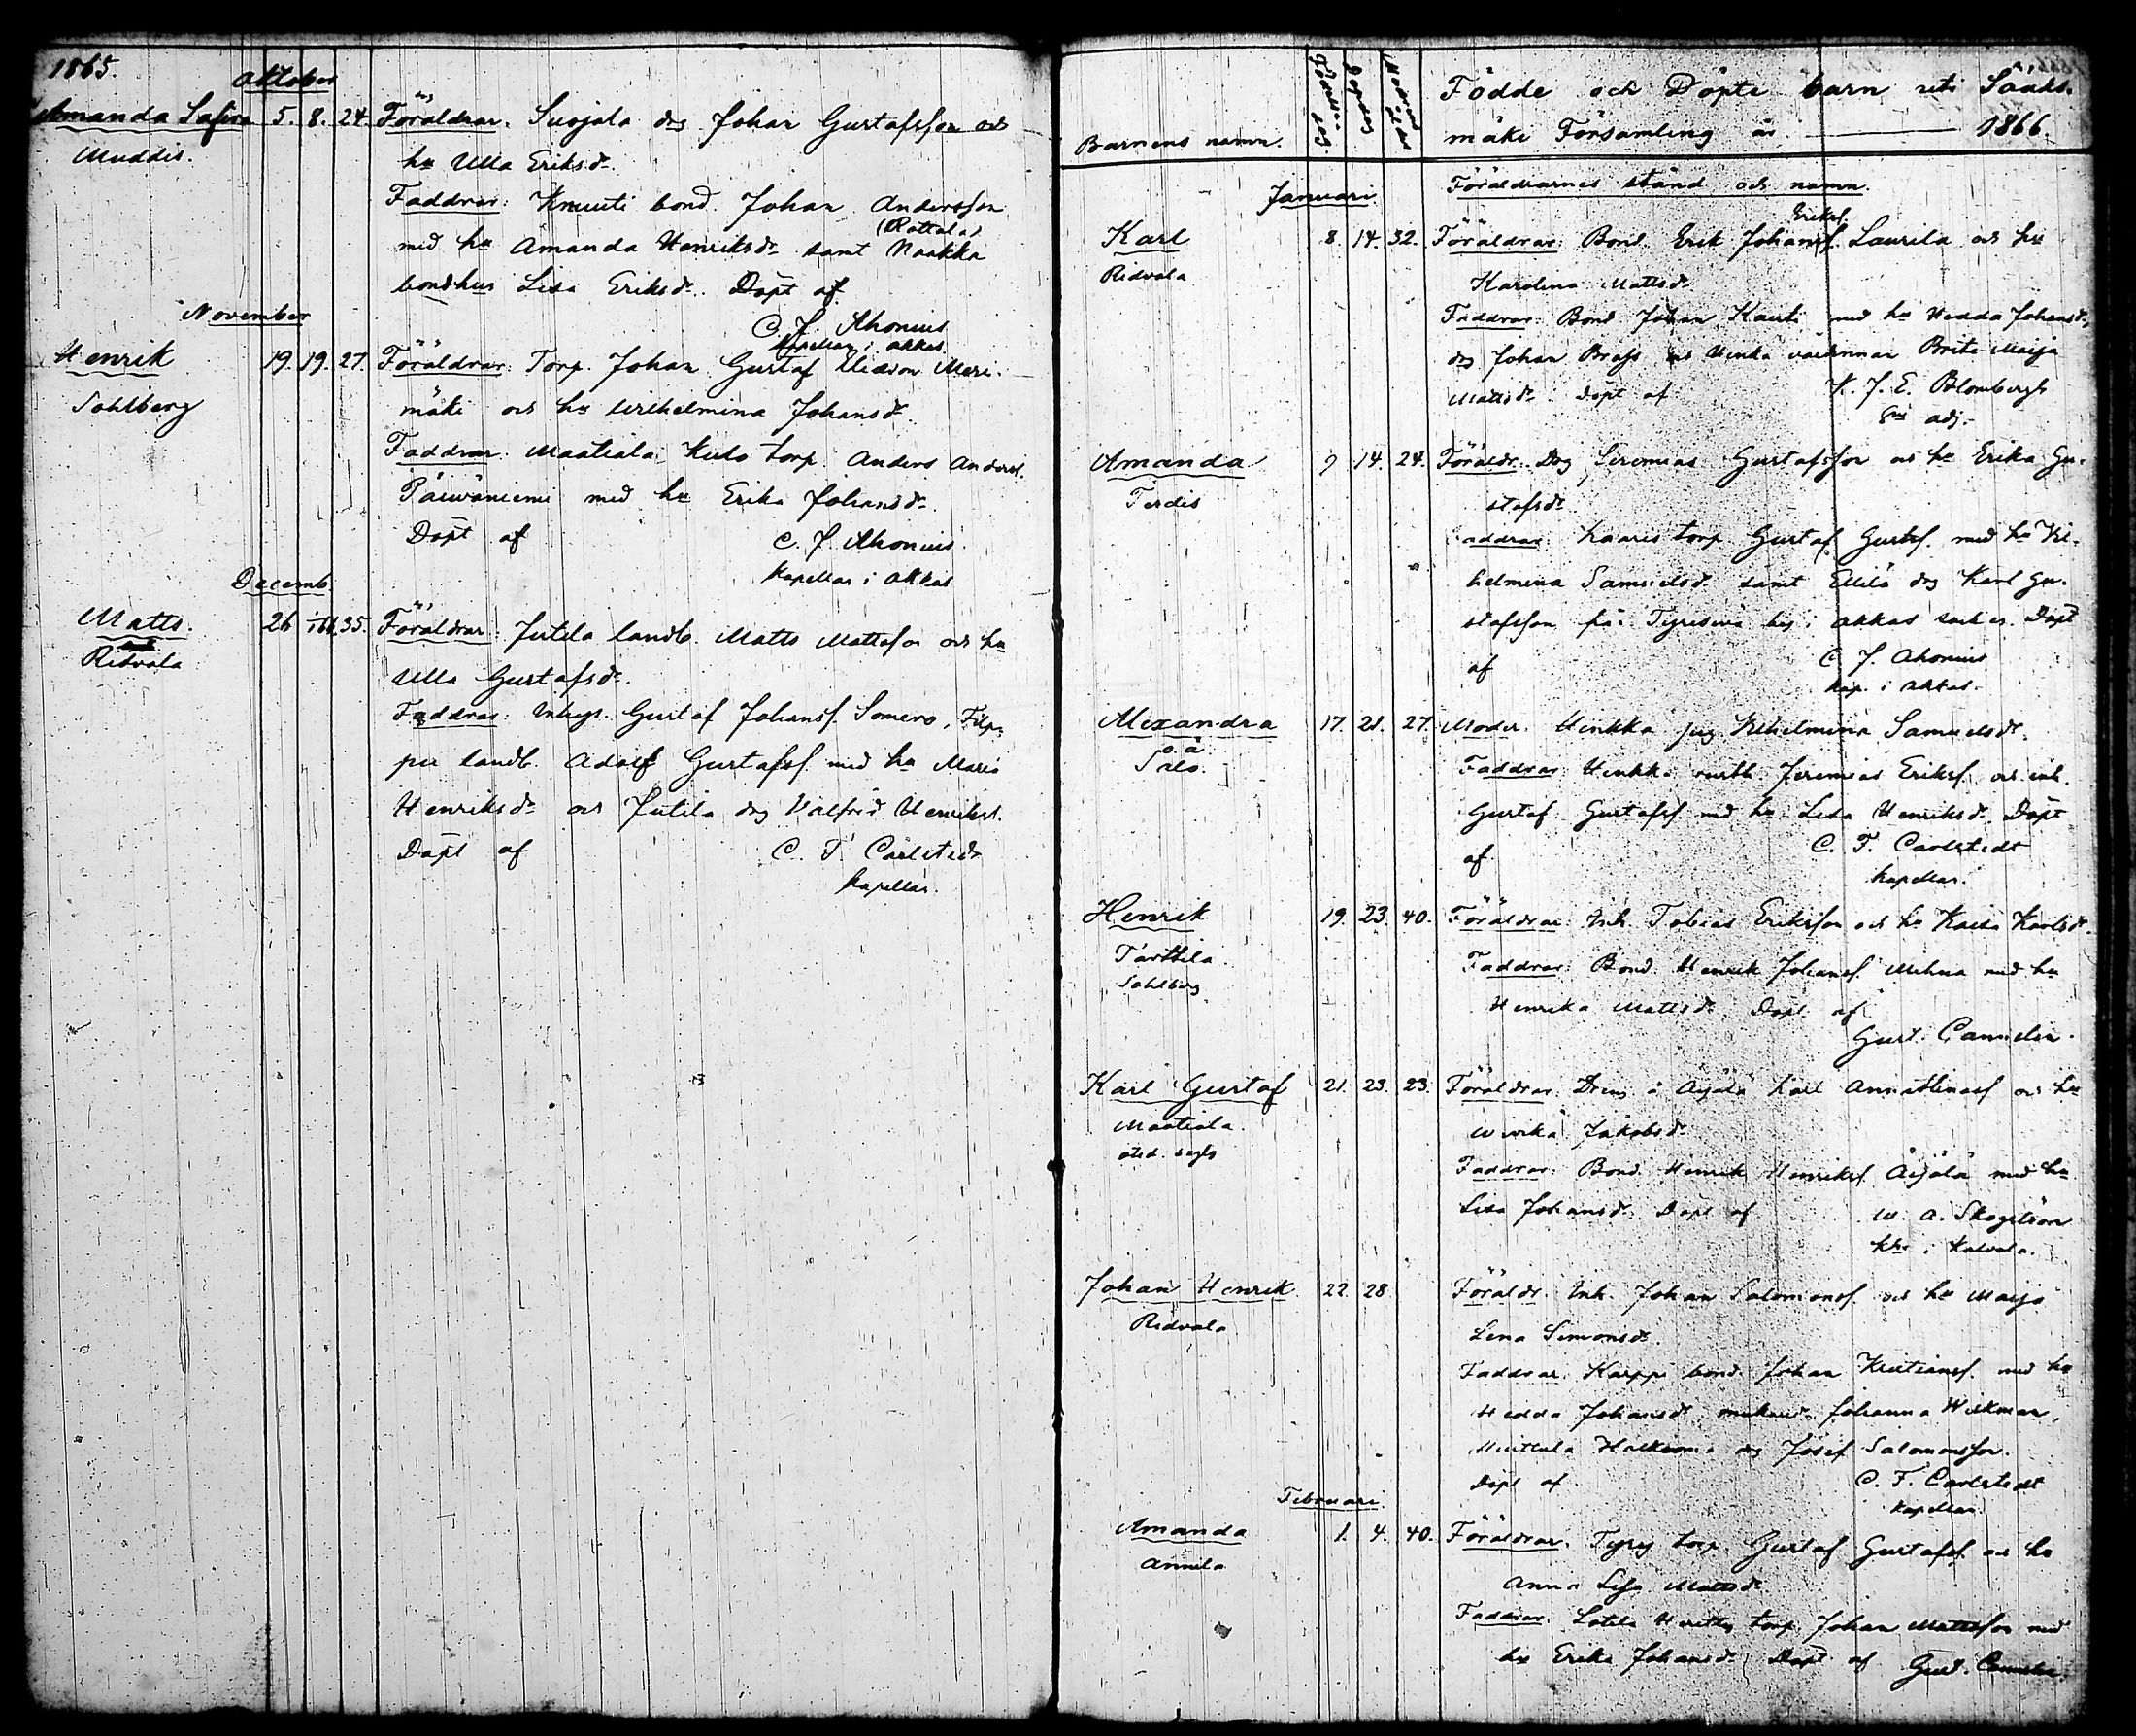 1865.
Oktober
Amanda Safira 5. 8. 24. Föräldrar. Suojala dg Johan Gustafsson och
Muddis. hu Ulla Eriksdr.
Faddrar: Knuuti bond. Johan Andersson
(Rattala)
med hu Amanda Henriksdr samt Naakka
bondhus Lisa Eriksdr. Döpt af
C. J. Ahonius
Kapellan i Akkas
November
Henrik 19. 19. 27. Föräldrar: Torp. Johan Gustaf Meri-
Sohlberg mäki och hu Wilhelmina Johansdr.
Faddrar: Maatiala torp. Anders Andersf.
Päiwäniemi med hu Erika Johansdr.
Döpt af C. J. Ahonius.
Kapellan i Akkas
Decemb.
Matts. 26 35. Föräldrar: Jutila landb. Matts Mattsson och hu
Ridvala Ulla Gustafsdr.
Faddrar: Inhys. Gustaf Johansf. Somero, Filp-
pu landb. Adolf Gustafsf. med hu Maria
Henriksdr och Jutila dg Valfrid Henriksf.
Döpt af C. F. Carlstedt
Kapellan.
Barnens namn. Födelse dag. Döpdag Födde och Döpte barn uti Sääks-
mäki Församling år 1866.
Föräldrarnes stånd och namn.
Januari
Eriksf.
Karl 8. 14. 32. Föräldrar: Bond. Erik Johansf. Laurila och hu
Ridvala Karolina Mattsdr
Faddrar: Bond Johan Kauti med hu Hedda Johansdr,
dg Johan Brask Brita Maija
Mattsdr. Döpt af K. J. E. Blombergh
adj.
Amanda 9 14. 24. Föräldr. Dg Jeremias Gustafsson och hu Erika Gu-
Terdis stafsdr
Faddrar: Kaaris torp. Gustaf Gustf. med hu Vil-
helmina Samuelsdr samt Eliä dg Karl Gu-
stafsson från i Akkas socken. Döpt
af C. J. Ahonius
Kap. i Akkas.
Alexandra 17. 21. 27. Moder. Henkka pig. Vilhelmina Samuelsdr.
o.ä.
Salo. Faddrar: Henkka Jeremias Eriksf. och inh.
Gustaf Gustafsf. med hu Lisa Henriksdr. Döpt
af C. F. Carlstedt
Kapellan.
Henrik 19. 23. 40. Föräldrar: Inh. Tobias Eriksson och hu Kaisa Karlsdr.
Tarttila. Faddrar: Bond. Henrik Johansf. med hu
Sohlberg Henrika Mattsdr. Döpt af
Gust. Cannelin.
Karl Gustaf 21. 23. 23. Föräldrar. Dreng å Äijälä Karl och hu
Maatiala. Wivika Jakobsdr
Faddrar: Bond Henrik Henriksf. Äijälä med hu
Lisa Johansdr. Döpt af W. A. Skogström
i Kalvola.
Johan Henrik 22. 28. Föräldr. Inh. Johan Salomonsf. och hu Maija
Ridvala Lena Simonsdr.
Faddrar. Karppi bond. Johan Kristiansf. med hu
Hedda Johansdr, Johanna Wikman,
dg Josef Salomonsson.
Döpt af C. F. Carlstedt
Kapellan
Februari
Amanda 1. 4. 40. Föräldrar. torp. Gustaf Gustafsf. och hu
Annila Anna Lisa Mattsdr
Faddrar. torp. Johan Mattsson med
hu Erika Johansdr. Döpt af Gust. Cannelin.